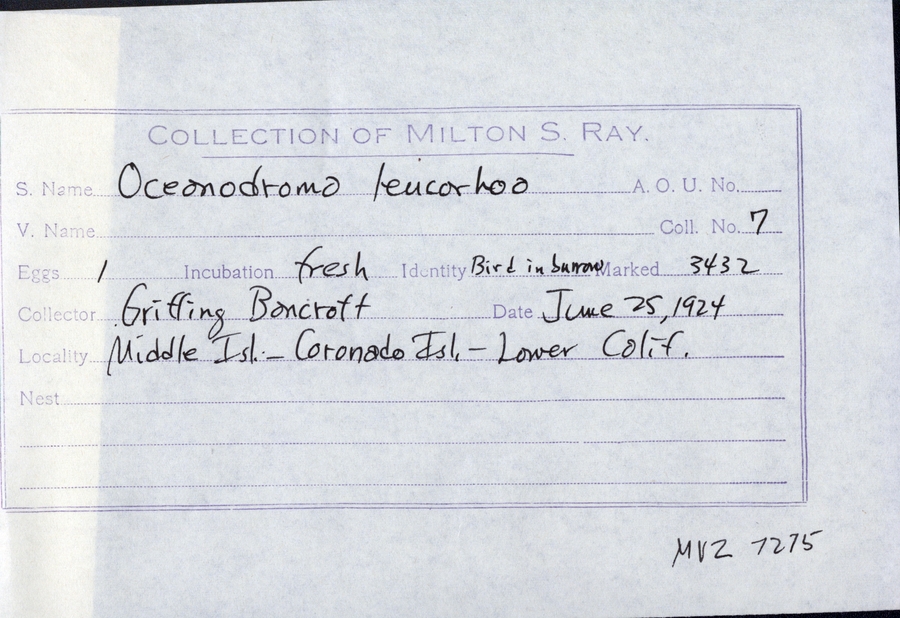 COLLECTION OF MILTON S. RAY.
S. Name Oceanodroma leucorhoa A. O. U. No.
V. Name Coll. No. 7
Eggs 1 Incubation fresh Identity Bird in burrow Marked 3432
Collector Griffing Bancroft Date June 25, 1924
Locality Middle Isl. - Coronado Isl. - Lower Calif.
Nest
MVZ 7275